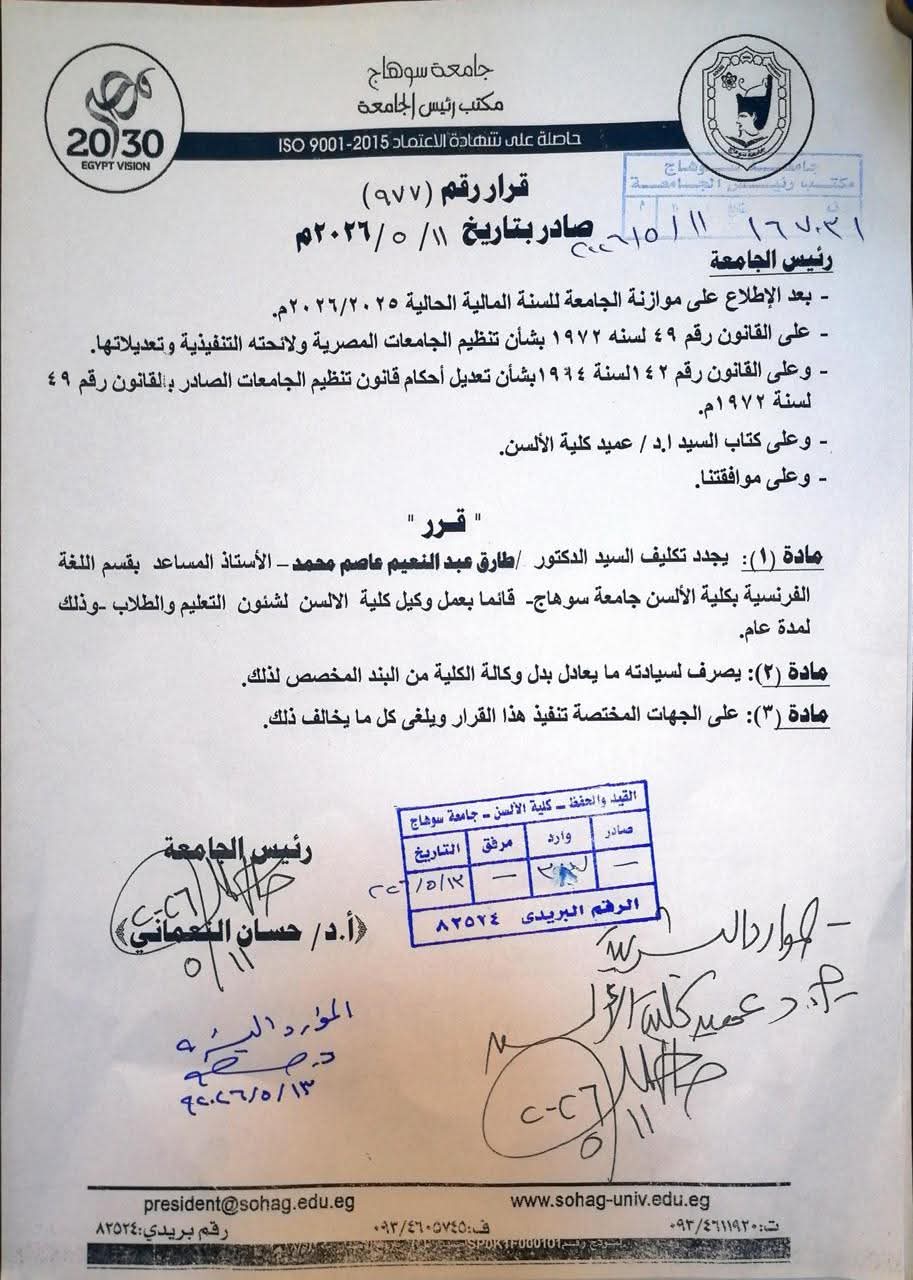 جامعة سوهاج
مكتب رئيس الجامعة
حاصلة على شهادة الاعتماد ISO 9001-2015
2030
EGYPT VISION
جامعة سوهاج
مكتب رئيس الجامعة
قرار رقم (٩٧٧)
صادر بتاريخ ١١/ ٥ /٢٠٢٦م
رئيس الجامعة
- بعد الإطلاع على موازنة الجامعة للسنة المالية الحالية ٢٠٢٦/٢٠٢٥م.
- على القانون رقم ٤٩ لسنه ١٩٧٢ بشأن تنظيم الجامعات المصرية ولائحته التنفيذية وتعديلاتها.
- وعلى القانون رقم ١٤٢لسنة ١٩٩٤بشأن تعديل أحكام قانون تنظيم الجامعات الصادر بالقانون رقم ٤٩
لسنة ١٩٧٢م.
- وعلى كتاب السيد ا.د / عميد كلية الألسن.
- وعلى موافقتنا.
" قـرر "
مادة (١): يجدد تكليف السيد الدكتور /طارق عبد النعيم عاصم محمد – الأستاذ المساعد بقسم اللغة
الفرنسية بكلية الألسن جامعة سوهاج- قائما بعمل وكيل كلية الالسن لشئون التعليم والطلاب -وذلك
لمدة عام.
مادة (٢): يصرف لسيادته ما يعادل بدل وكالة الكلية من البند المخصص لذلك.
مادة (٣): على الجهات المختصة تنفيذ هذا القرار ويلغى كل ما يخالف ذلك.
القيد والحفظ – كلية الألسن – جامعة سوهاج
صادر وارد مرفق التاريخ
— — ٢٠٢٦/٥/١٣
الرقم البريدى ٨٢٥٢٤
رئيس الجامعة
٢٠٢٦
(أ.د/ حسان النعماني)
٥/١١
- الموارد البشرية
- أ.د عميد كلية الألسن
٢٠٢٦
٥/١١
الموارد البشرية
٢٠٢٦/٥/١٣
president@sohag.edu.eg
www.sohag-univ.edu.eg
ت:٠٩٣/٤٦١١٩٢٠
ف:٠٩٣/٤٦٠٥٧٤٥
رقم بريدي:٨٢٥٢٤